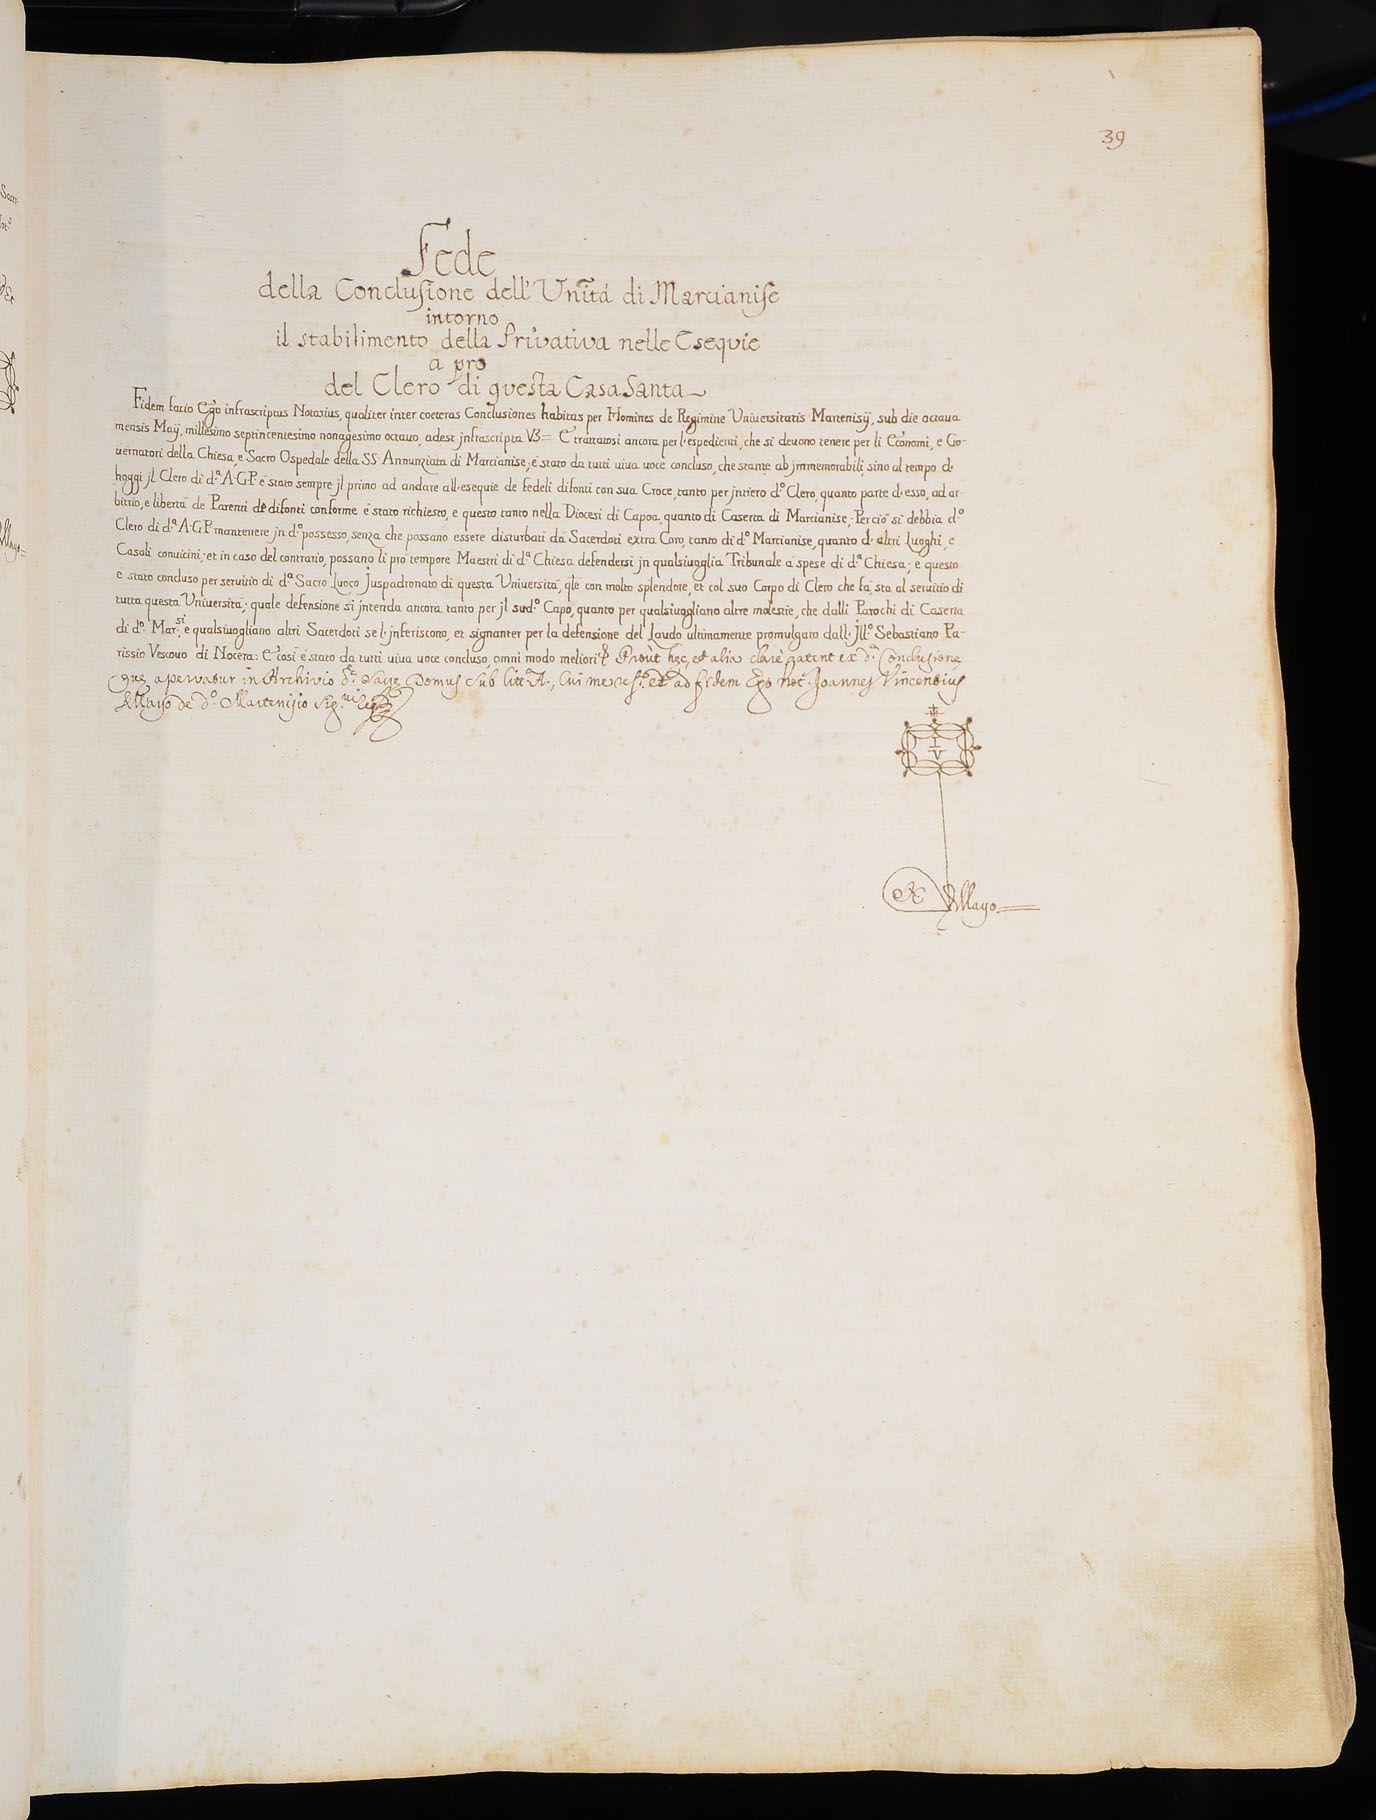 39
Fede
della Conclusione dell'Unitá di Marcianise
intorno
il stabilimento della Privativa nelle Esequie
a pro
del Clero di questa Casa Santa
Fidem facio Ego infrascriptus Notarius, qualiter inter coeteras Conclusiones habitas per Homines de Regimine Universitatis Martenisÿ, sub die octaua
mensis Maÿ, millesimo septincentesimo nonagesimo octauo, adest jnfrascripta V3= E trattatosi ancora per l'espedienti, che si deuono tenere per li Economi, e Go-
uernatori della Chiesa, e Sacro Ospedale della SS. Annunziata di Marcianise; è stato da tutti uiua uoce concluso, che stante ab jmmemorabili, sino al tempo d.
hoggi jl Clero di d.ª A.G.P. è stato sempre jl primo ad andare all'esequie de fedeli difonti con sua Croce, tanto per jntiero d.º Clero, quanto parte d'esso, ad ar-
bitrio, e libertà de Parenti de difonti conforme è stato richiesto, e questo tanto nella Diocesi di Capoa, quanto di Caserta di Marcianise; Perciò si debbia d.º
Clero di d.ª A.G.P. mantenere jn d.º possesso, senza che possano essere disturbati da Sacerdoti extra Coro, tanto di d.º Marcianise, quanto d'altri Luoghi, e
Casali conuicini; et in caso del contrario, possano li pro tempore Maestri di d.ª Chiesa defendersi jn qualsiuoglia Tribunale à spese di d.ª Chiesa; e questo
è stato concluso per seruitio di d.ª Sacro Luoco Juspadronato di questa Università, qlè con molto splendore, et col suo Corpo di Clero che fà, sta al seruitio di
tutta questa Università; quale defensione si jntenda ancora tanto per jl sud.º Capo, quanto per qualsiuogliano altre molestie, che dalli Parochi di Caserta
di d.º Mar.si, e qualsiuogliano altri Sacerdoti se l'jnferiscono, et signanter per la defensione del Laudo ultimamente promulgato dall'jll.º Sebastiano Pe-
rissio Vescouo di Nocera: E così è stato da tutti uiua uoce concluso, omni modo meliori Prout hęc, et alia clarè patent ex d.ª Conclusione
que aservatur in Archivio Domus sub litt.ª A., cui me et ad fidem Ego not. Joannes Vincentius
de Mayo de d.º Martenisio sig.vi
I V
de Mayo